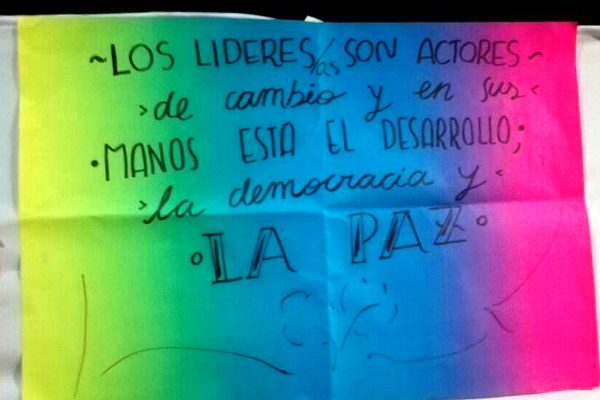 ~LOS LIDERES/as SON ACTORES~
>de cambio y en sus<
•MANOS ESTA EL DESARROLLO;
>la democracia y<
•LA PAZ•